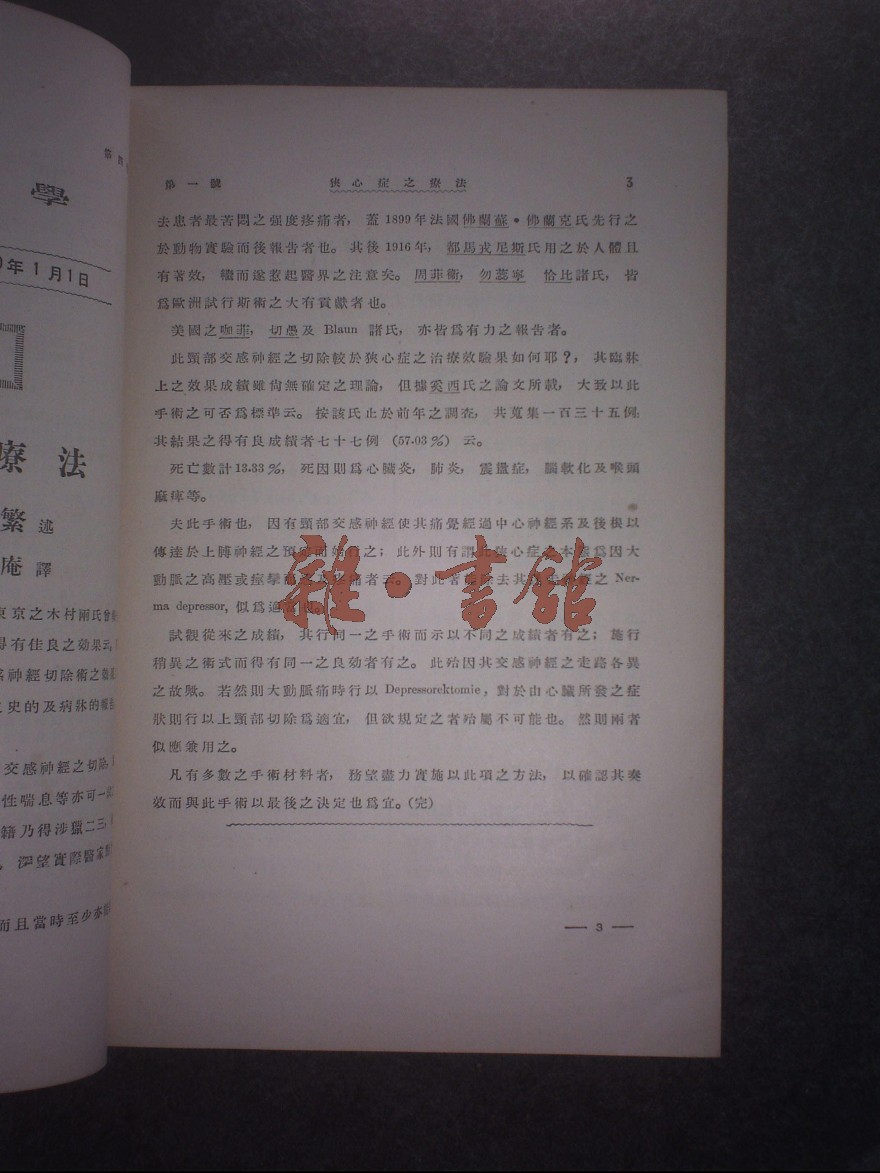 第
學
年1月1日
療法
繁 述
庵 譯
東京之木村兩氏曾
得有佳良之効果云
感神經切除術之
史的及病牀的
交感神經之切除
性喘息等亦可一
籍乃得涉獵二三
深望實際醫家
而且當時至少亦
第一號 狹心症之療法 3
去患者最苦悶之强度疼痛者, 蓋1899年法國佛蘭蘇·佛蘭克氏先行之
於動物實驗而後報告者也。 其後1916年, 都馬戎尼斯氏用之於人體且
有著效, 繼而遂惹起醫界之注意矣。 周菲衛, 勿蕊寧 恰比諸氏, 皆
爲歐洲試行斯術之大有貢獻者也。
美國之咖菲, 切愚及 Blaun 諸氏, 亦皆爲有力之報告者。
此頸部交感神經之切除較於狹心症之治療效驗果如何耶?, 其臨牀
上之效果成績雖尙無確定之理論, 但據奚西氏之論文所載, 大致以此
手術之可否爲標準云。 按該氏止於前年之調查, 共蒐集一百三十五例,
其結果之得有良成績者七十七例 (57.03%) 云。
死亡數計13.33%, 死因則爲心臟炎, 肺炎, 震盪症, 腦軟化及喉頭
麻痺等。
夫此手術也, 因有頸部交感神經使其痛覺經過中心神經系及後根以
傳達於上膊神經之預 而始行之; 此外則有謂此狹心症之本 爲因大
動脈之高壓或痙攣 疼痛者云。 對此著 除去其 之 Ner-
ma depressor, 似爲適當也。
試觀從來之成績, 其行同一之手術而示以不同之成績者有之; 施行
稍異之術式而得有同一之良効者有之。 此殆因其交感神經之走路各異
之故歟。 若然則大動脈痛時行以 Depressorektomie, 對於由心臟所發之症
狀則行以上頸部切除爲適宜, 但欲規定之者殆屬不可能也。 然則兩者
似應兼用之。
凡有多數之手術材料者, 務望盡力實施以此項之方法, 以確認其奏
效而與此手術以最後之決定也爲宜。(完)
— 3 —
雜·書館